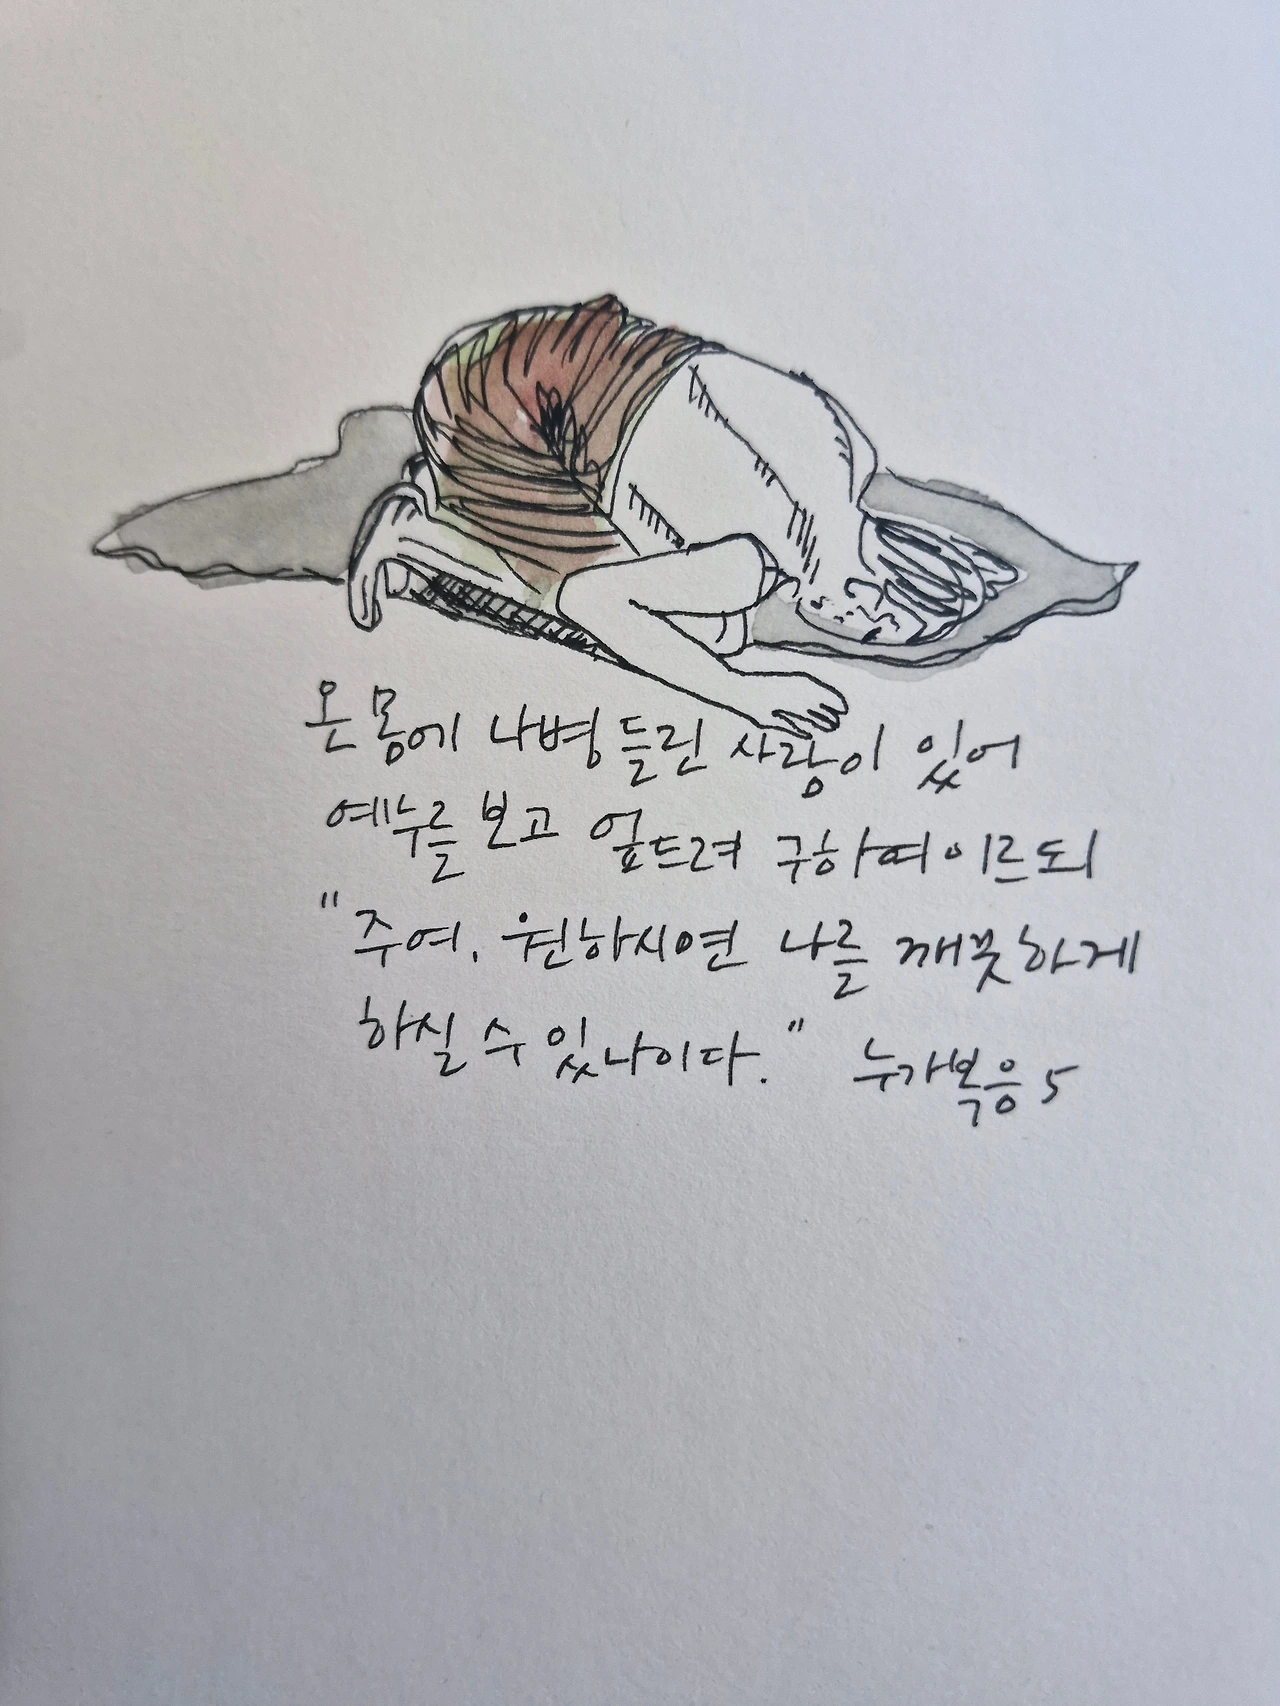 온 몸에 나병 들린 사람이 있어
예수를 보고 엎드려 구하여 이르되
"주여, 원하시면 나를 깨끗하게
하실 수 있나이다." 누가복음 5